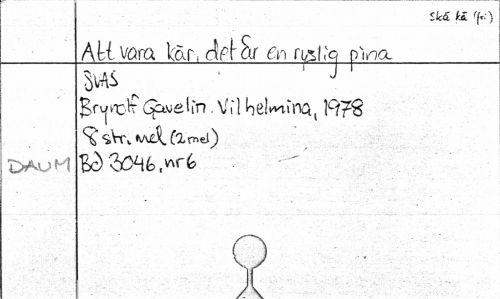 Skä kä (fri)
Att vara kär, det är en ryslig pina
SVAS
Brynolf Gavelin. Vilhelmina, 1978
8 str, mel (2 mel)
DAUM Bd 3046, nr 6